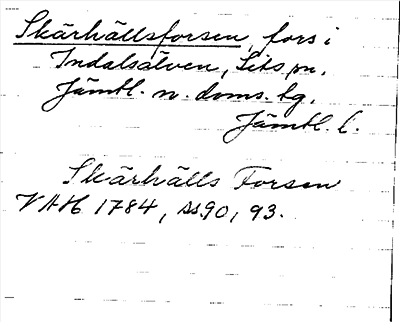 Skärhällsforsen, fors i
Indalsälven, Lits sn,
Jämtl. n. doms. tg,
Jämtl. l.
Skärhälls Forsen
VAH 1784, ss. 90, 93.